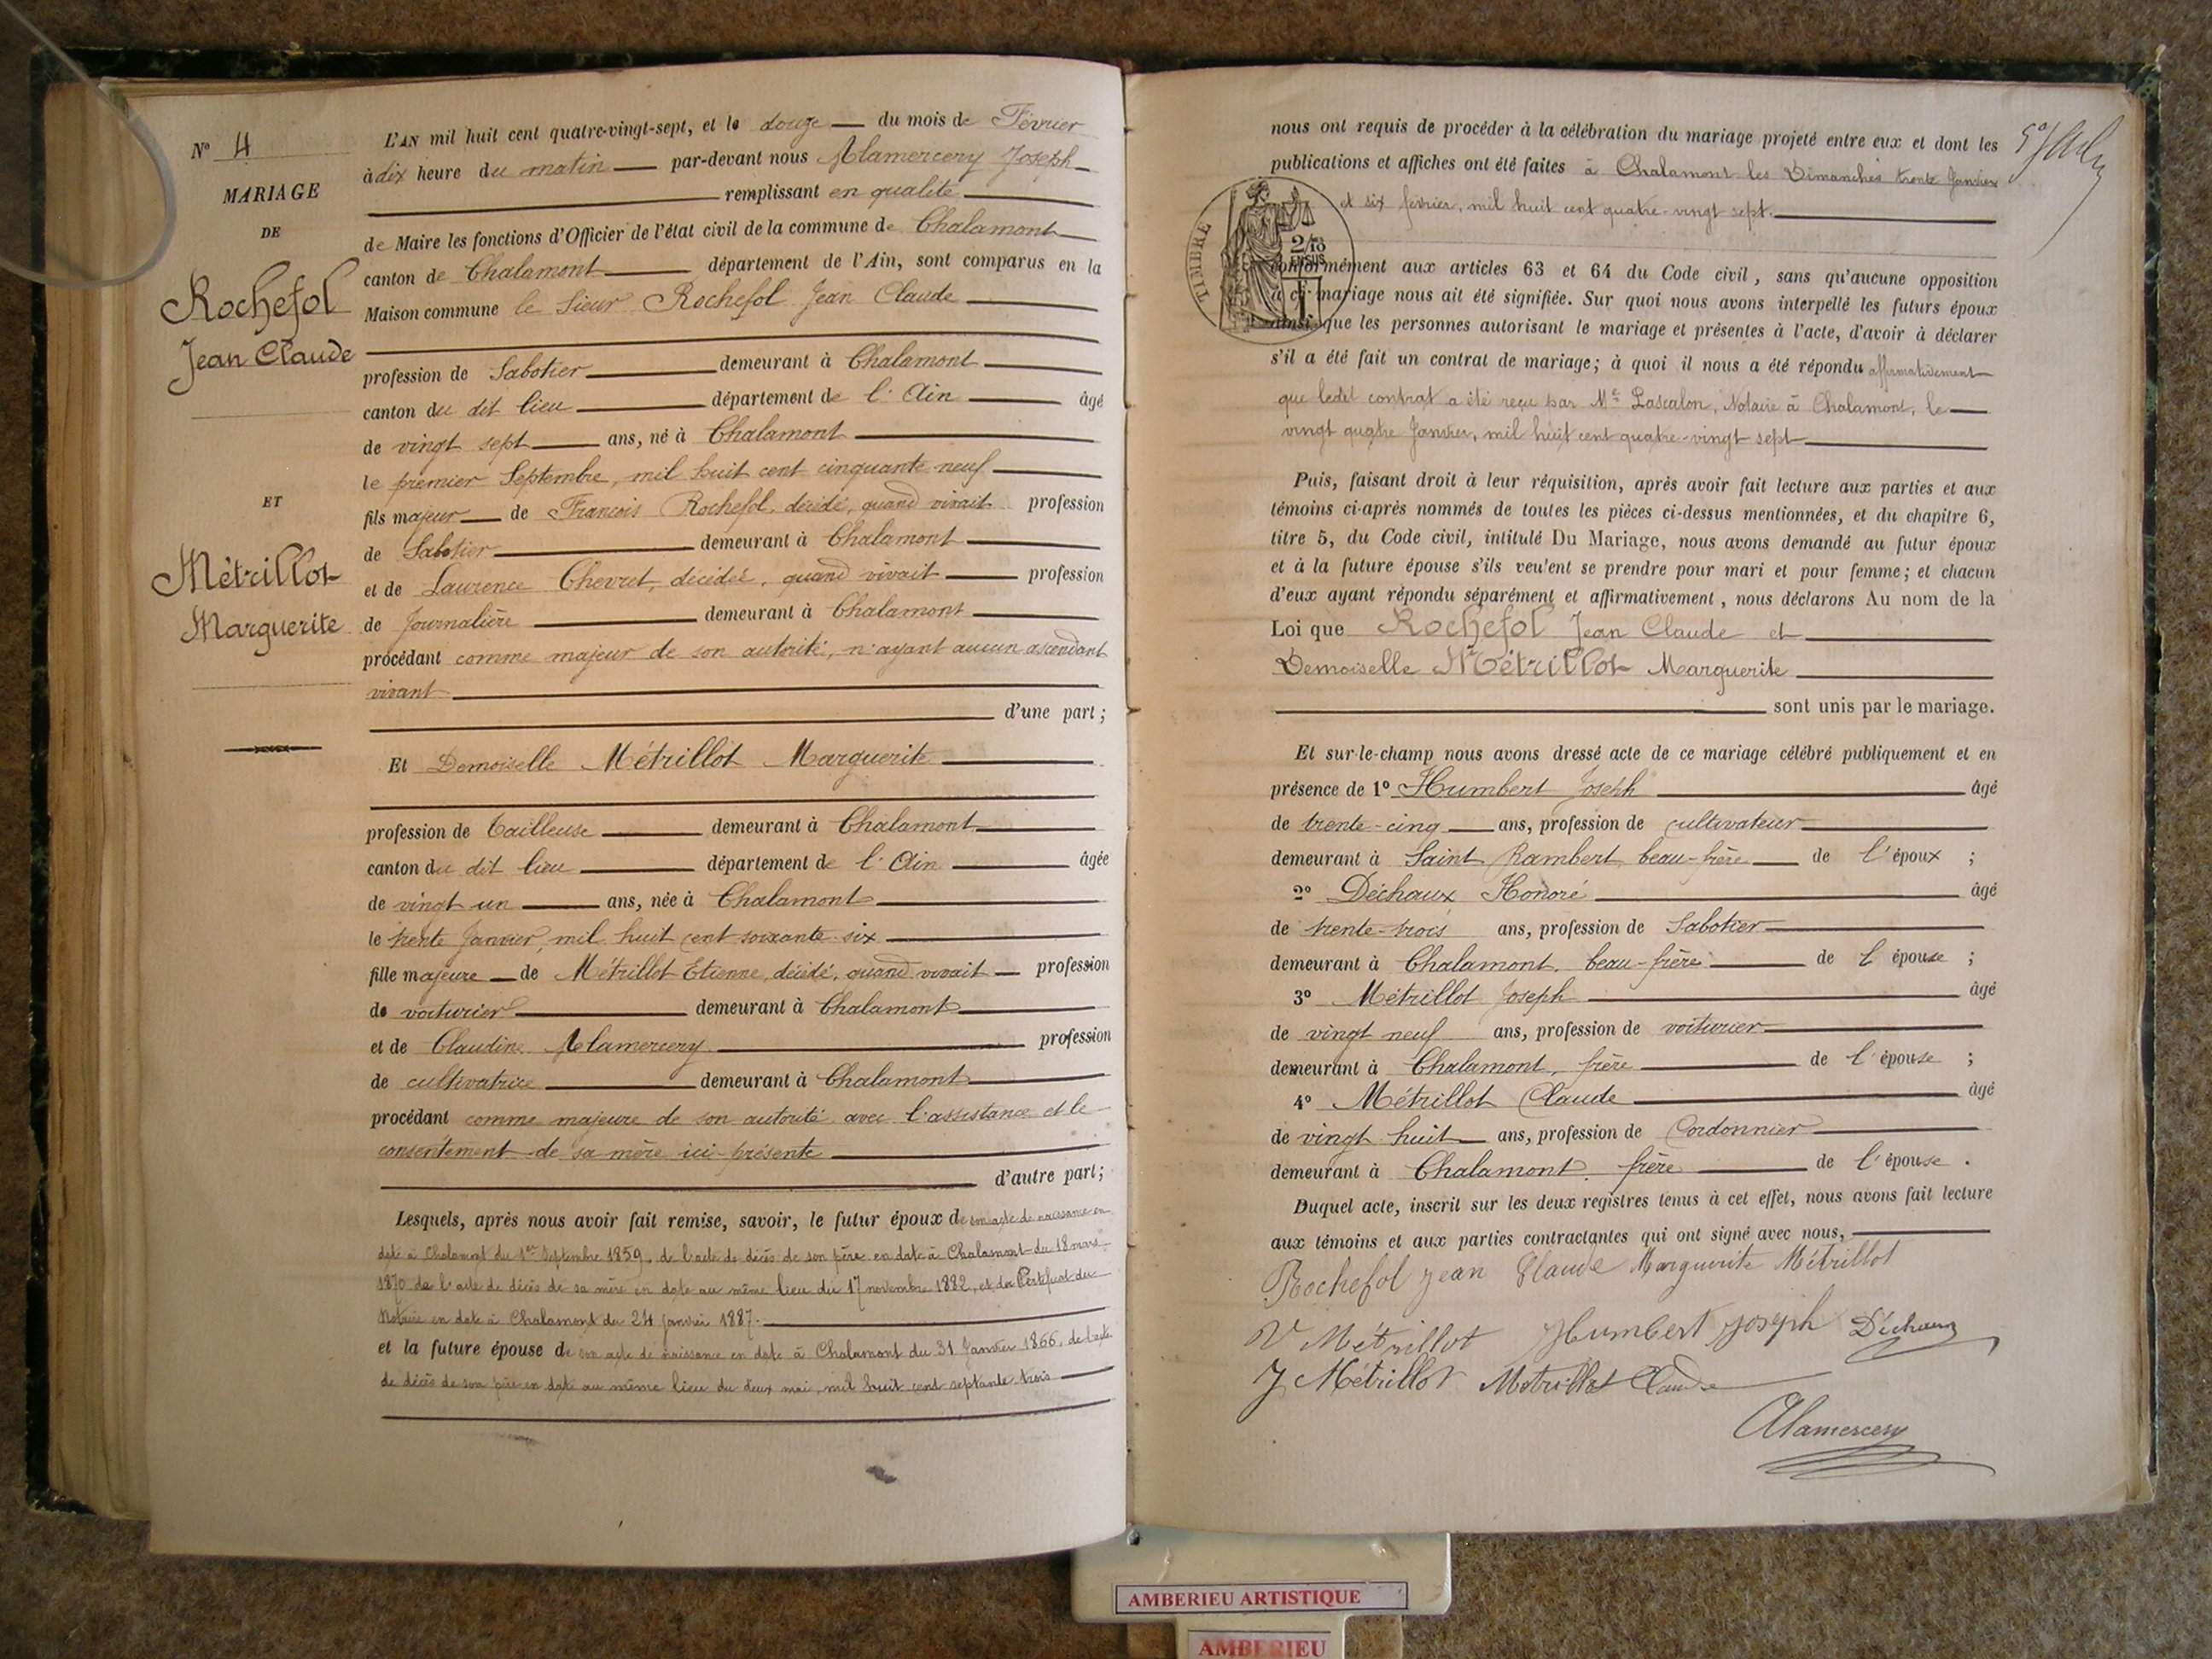 N° 4
MARIAGE
DE
Rochefol
Jean Claude
ET
Métrillot
Marguerite
L'AN mil huit cent quatre-vingt-sept, et le douze du mois de Février
à dix heure du matin par-devant nous Alamercery Joseph
remplissant en qualité
de Maire les fonctions d'Officier de l'état civil de la commune de Chalamont
canton de Chalamont département de l'Ain, sont comparus en la
Maison commune le Sieur Rochefol Jean Claude
profession de Sabotier demeurant à Chalamont
canton du dit lieu département de l'Ain âgé
de vingt sept ans, né à Chalamont
le premier Septembre, mil huit cent cinquante neuf
fils majeur de François Rochefol, décédé, quand vivait profession
de Sabotier demeurant à Chalamont
et de Laurence Chevret, décédée, quand vivait profession
de Journalière demeurant à Chalamont
procédant comme majeur de son autorité, n'ayant aucun ascendant
vivant
d'une part ;
Et Demoiselle Métrillot Marguerite
profession de Tailleuse demeurant à Chalamont
canton du dit lieu département de l'Ain âgée
de vingt un ans, née à Chalamont
le trente Janvier, mil huit cent soixante-six
fille majeure de Métrillot Etienne, décédé, quand vivait profession
de voiturier demeurant à Chalamont
et de Claudine Alamercery profession
de cultivatrice demeurant à Chalamont
procédant comme majeure de son autorité avec l'assistance et le
consentement de sa mère ici présente
d'autre part ;
Lesquels, après nous avoir fait remise, savoir, le futur époux de son acte de naissance en
date à Chalamont du 1er Septembre 1859, de l'acte de décès de son père en date à Chalamont du 18 mars
1870 de l'acte de décès de sa mère en date au même lieu du 17 novembre 1882, et du Certificat du
Notaire en date à Chalamont du 24 janvier 1887.
et la future épouse de son acte de naissance en date à Chalamont du 31 Janvier 1866, de l'acte
de décès de son père en date au même lieu du deux mai, mil huit cent septante trois
nous ont requis de procéder à la célébration du mariage projeté entre eux et dont les
publications et affiches ont été faites à Chalamont les Dimanches trente Janvier
et six février, mil huit cent quatre-vingt sept.
TIMBRE
conformément aux articles 63 et 64 du Code civil, sans qu'aucune opposition
à ce mariage nous ait été signifiée. Sur quoi nous avons interpellé les futurs époux
ainsi que les personnes autorisant le mariage et présentes à l'acte, d'avoir à déclarer
s'il a été fait un contrat de mariage ; à quoi il nous a été répondu affirmativement
que ledit contrat a été reçu par Me Pascalon, Notaire à Chalamont, le
vingt quatre Janvier, mil huit cent quatre-vingt sept
Puis, faisant droit à leur réquisition, après avoir fait lecture aux parties et aux
témoins ci-après nommés de toutes les pièces ci-dessus mentionnées, et du chapitre 6,
titre 5, du Code civil, intitulé Du Mariage, nous avons demandé au futur époux
et à la future épouse s'ils veulent se prendre pour mari et pour femme ; et chacun
d'eux ayant répondu séparément et affirmativement, nous déclarons Au nom de la
Loi que Rochefol Jean Claude et
Demoiselle Métrillot Marguerite
sont unis par le mariage.
Et sur-le-champ nous avons dressé acte de ce mariage célébré publiquement et en
présence de 1° Humbert Joseph âgé
de trente-cinq ans, profession de cultivateur
demeurant à Saint Rambert, beau-frère de l'époux ;
2° Déchaux Honoré âgé
de trente-trois ans, profession de Sabotier
demeurant à Chalamont, beau-frère de l'épouse ;
3° Métrillot Joseph âgé
de vingt neuf ans, profession de voiturier
demeurant à Chalamont, frère de l'épouse ;
4° Métrillot Claude âgé
de vingt huit ans, profession de Cordonnier
demeurant à Chalamont, frère de l'épouse.
Duquel acte, inscrit sur les deux registres tenus à cet effet, nous avons fait lecture
aux témoins et aux parties contractantes qui ont signé avec nous,
Rochefol Jean Claude Marguerite Métrillot
V Métrillot Humbert Joseph Déchaux
J Métrillot Métrillot Claude
Alamercery
AMBERIEU ARTISTIQUE
AMBERIEU